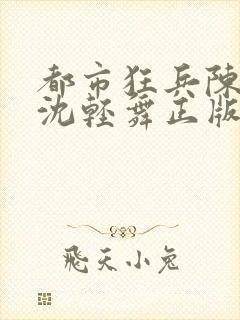 都市狂兵陳
沈輕舞正版
飛天小兔